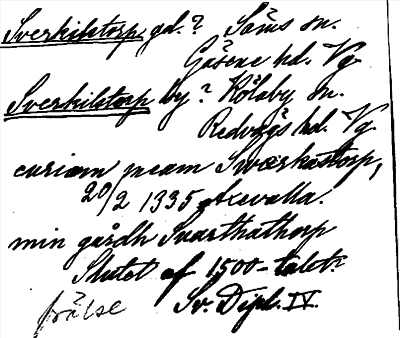 Sverkilstorp, gd.? Säms sn.
Gäsene hd. Vg
Sverkilstorp by? Kölaby sn.
Redvägs hd. Vg
curiam meam Swærkæstorp,
20/2 1335 Axevalla.
min gårdh Svarthathorp
Slutet af 1500-talet.
frälse Sv. Dipl. IV.